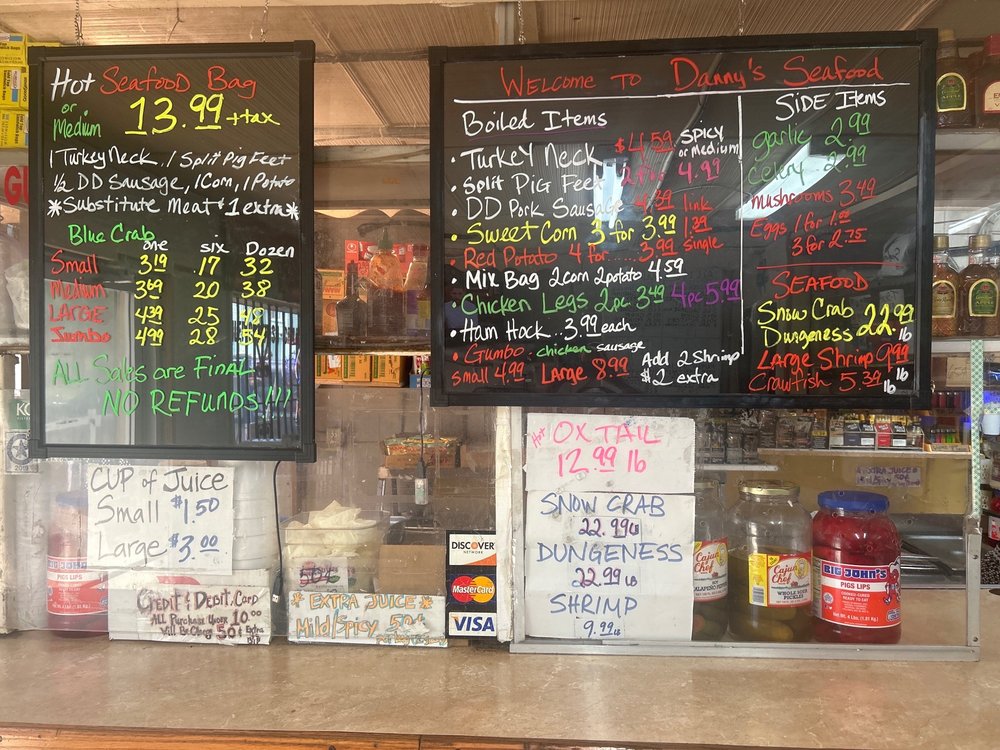 Hot Seafood Bag
or Medium 13.99 + tax
1 Turkey Neck, 1 Split Pig Feet
½ DD Sausage, 1 Corn, 1 Potato
*Substitute Meat $1 extra*
Blue Crab
one six Dozen
Small 3.19 17 32
Medium 3.69 20 38
LARGE 4.39 25 48
Jumbo 4.99 28 54
ALL Sales are FINAL
NO REFUNDS!!!
WELCOME TO Danny's Seafood
Boiled Items
• Turkey Neck $4.59 SPICY or Medium
• Split Pig Feet 4.99
• DD Pork Sausage link
• Sweet Corn 3 for 3.99 1.39
• Red Potato 4 for ...... 3.99 single
• Mix Bag 2 corn 2 potato 4.59
• Chicken Legs 2pc 3.49 4pc 5.99
• Ham Hock .. 3.99 each
• Gumbo: chicken sausage
small 4.99 Large 8.99 Add 2 Shrimp
$2 extra
SiDE Items
garlic 2.99
celery 2.99
mushrooms 3.49
Eggs 1 for 1.00
3 for 2.75
SEAFOOD
Snow Crab 22.99
Dungeness lb
Large Shrimp 9.99 lb
Crawfish 5.39 lb
CUP of JUICE
Small $1.50
Large $3.00
CREdit & DEbit, CARD
ALL PurchASE UNdER 10.00
Will Be CharG 50¢ Extra
50¢
*EXTRA JUICE*
Mild/Spicy 50¢
DISCOVER
NETWORK
MasterCard
VISA
Hot OXTAIL
12.99 lb
SNOW CRAB
22.99 LB
DUNGENESS
22.99 LB
SHRIMP
9.99 LB
Cajun Chef
JALAPENO PEPPERS
Cajun Chef
WHOLE SOUR
PICKLES
BIG JOHN'S
PIGS LIPS
PIGS LIPS
EXTRA JUICE